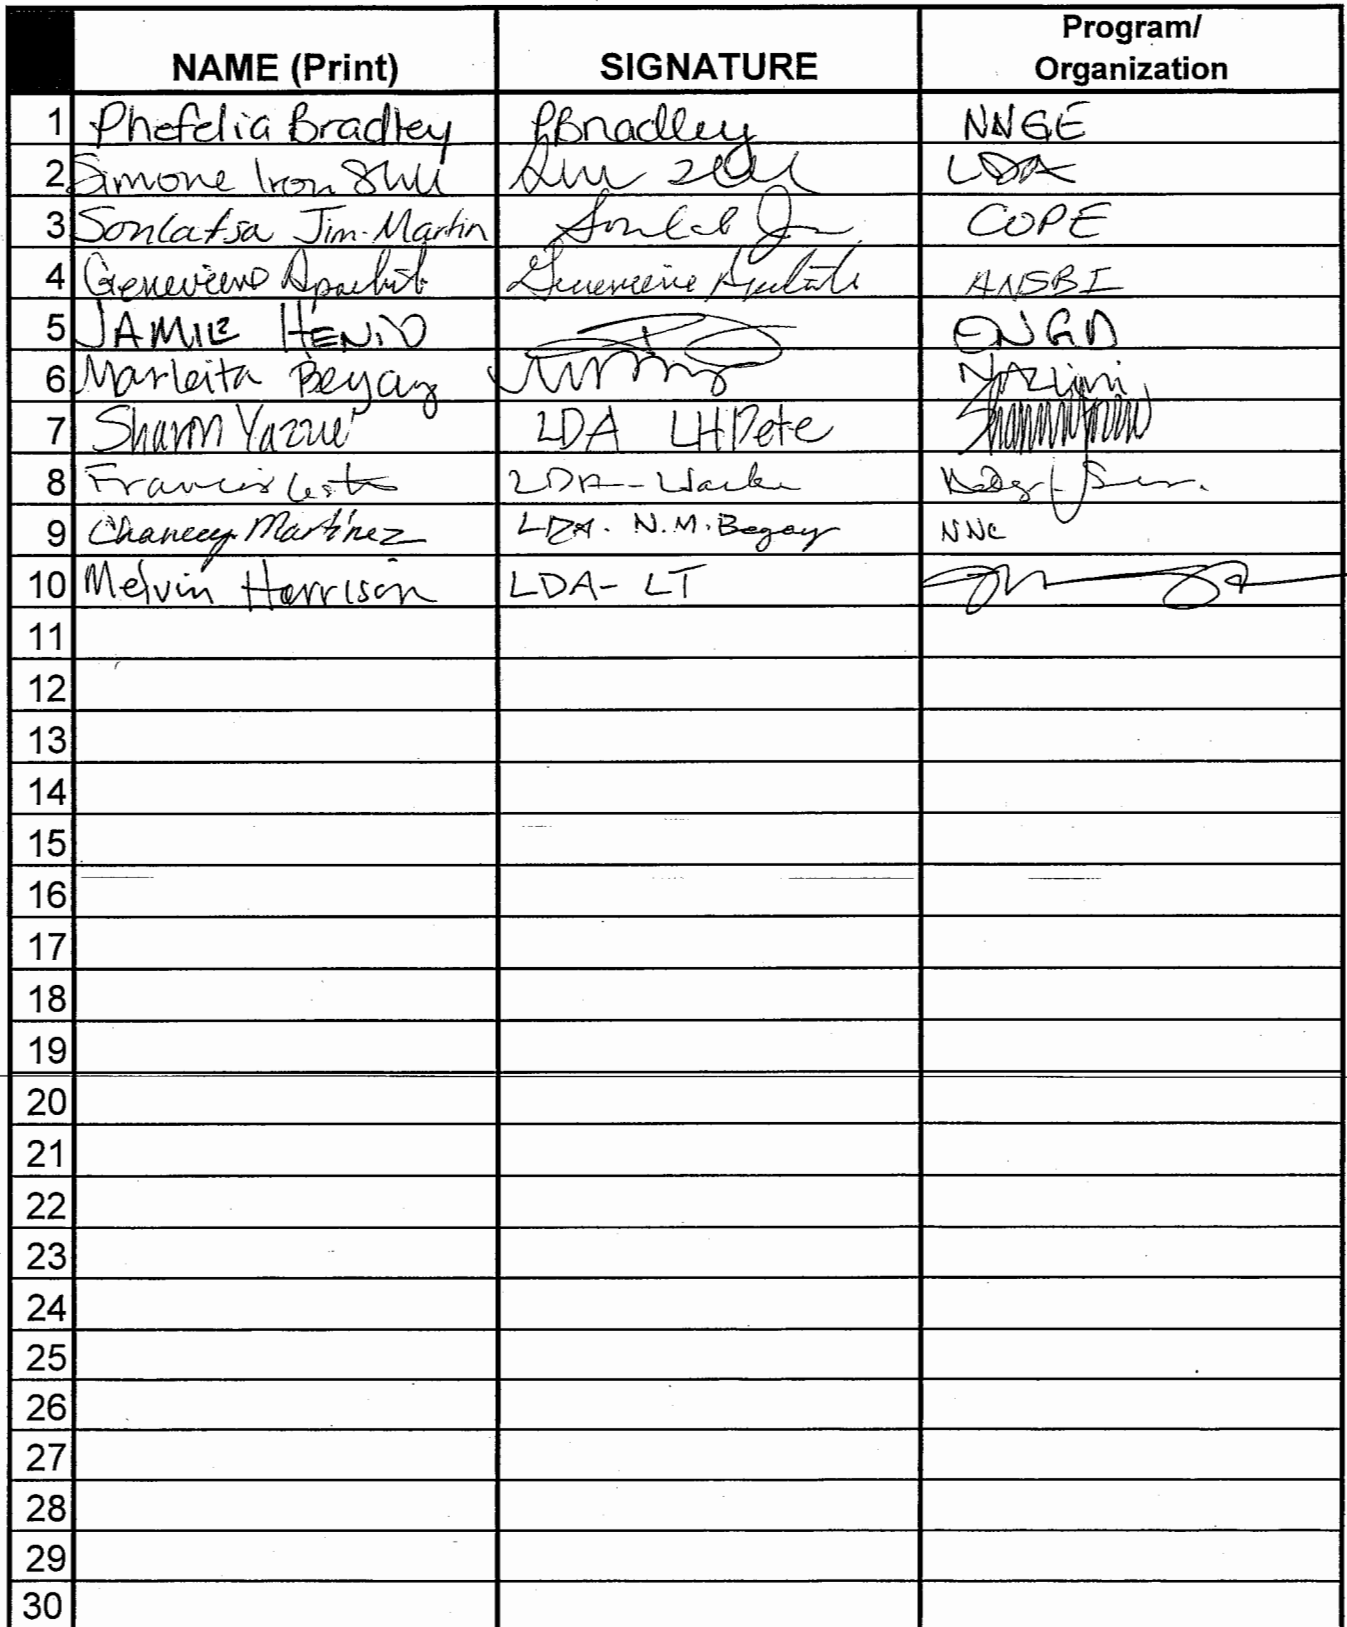 NAME (Print) SIGNATURE Program/
Organization
1 Phefelia Bradley PBradley NNGE
2 Simone Iron LDA
3 Sonlatsa Jim-Martin COPE
4 Genevieve Genevieve ANSBI
5 JAMIE
6 Marleita Begay Nazlini
7 Sharon Yazzie LDA LHPete
8 Francis LDA-
9 Chaneey Martinez LDA. N.M. Begay NNC
10 Melvin Harrison LDA- LT
11
12
13
14
15
16
17
18
19
20
21
22
23
24
25
26
27
28
29
30